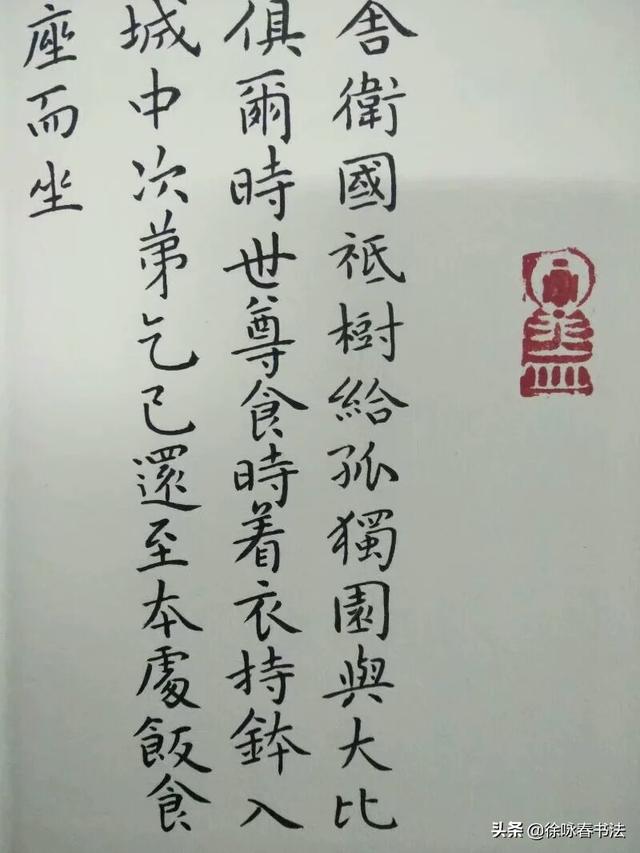 舍衛國祗樹給孤獨園與大比
俱爾時世尊食時着衣持鉢入
城中次第乞已還至本處飯食
座而坐
头条 @徐咏春书法